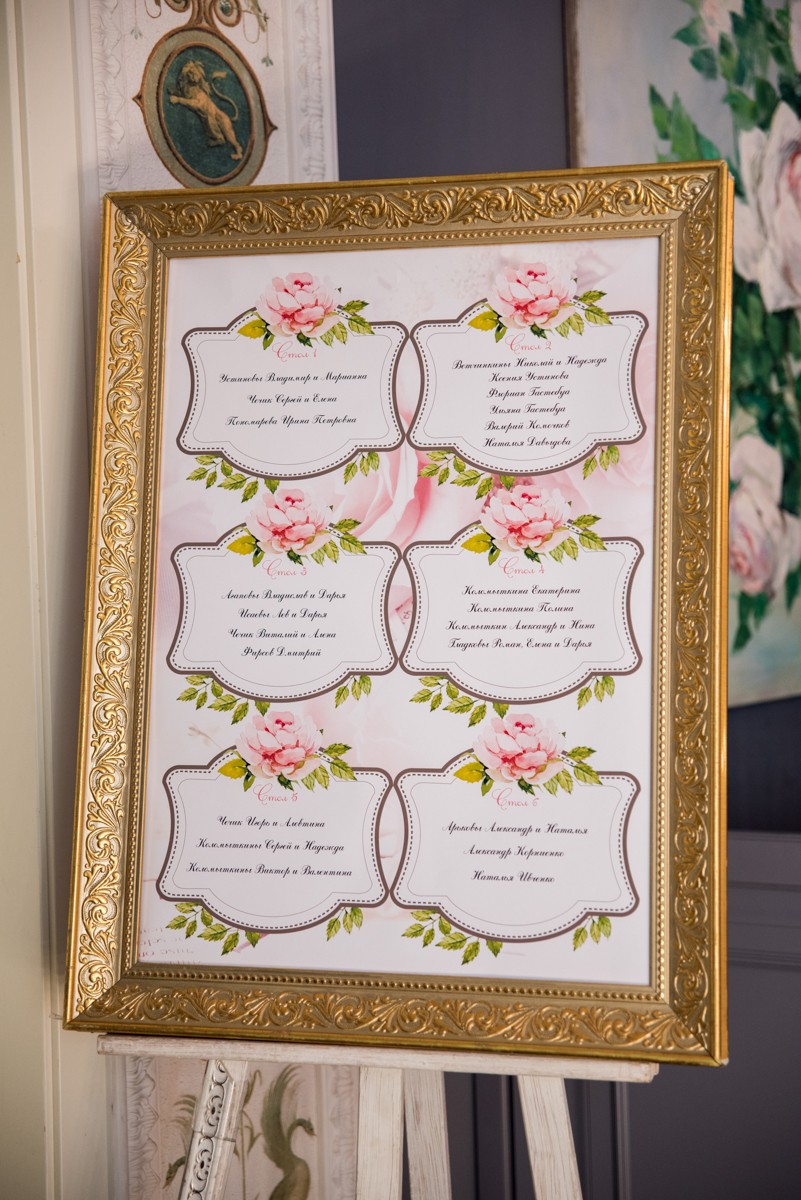 Стол 1
Устиновы Владимир и Марианна
Чечик Сергей и Елена
Пономарева Ирина Петровна
Стол 2
Ветчинкины Николай и Надежда
Ксения Устинова
Флориан Гастебуа
Ульяна Гастебуа
Валерий Комочков
Наталья Давыдова
Стол 3
Агаповы Владислав и Дарья
Исаевы Лев и Дарья
Чечик Виталий и Алена
Фирсов Дмитрий
Стол 4
Коломыткина Екатерина
Коломыткина Полина
Коломыткин Александр и Нина
Гладковы Роман, Елена и Дарья
Стол 5
Чечик Игорь и Алевтина
Коломыткины Сергей и Надежда
Коломыткины Виктор и Валентина
Стол 6
Ароковы Александр и Наталья
Александр Корниенко
Наталья Ивченко